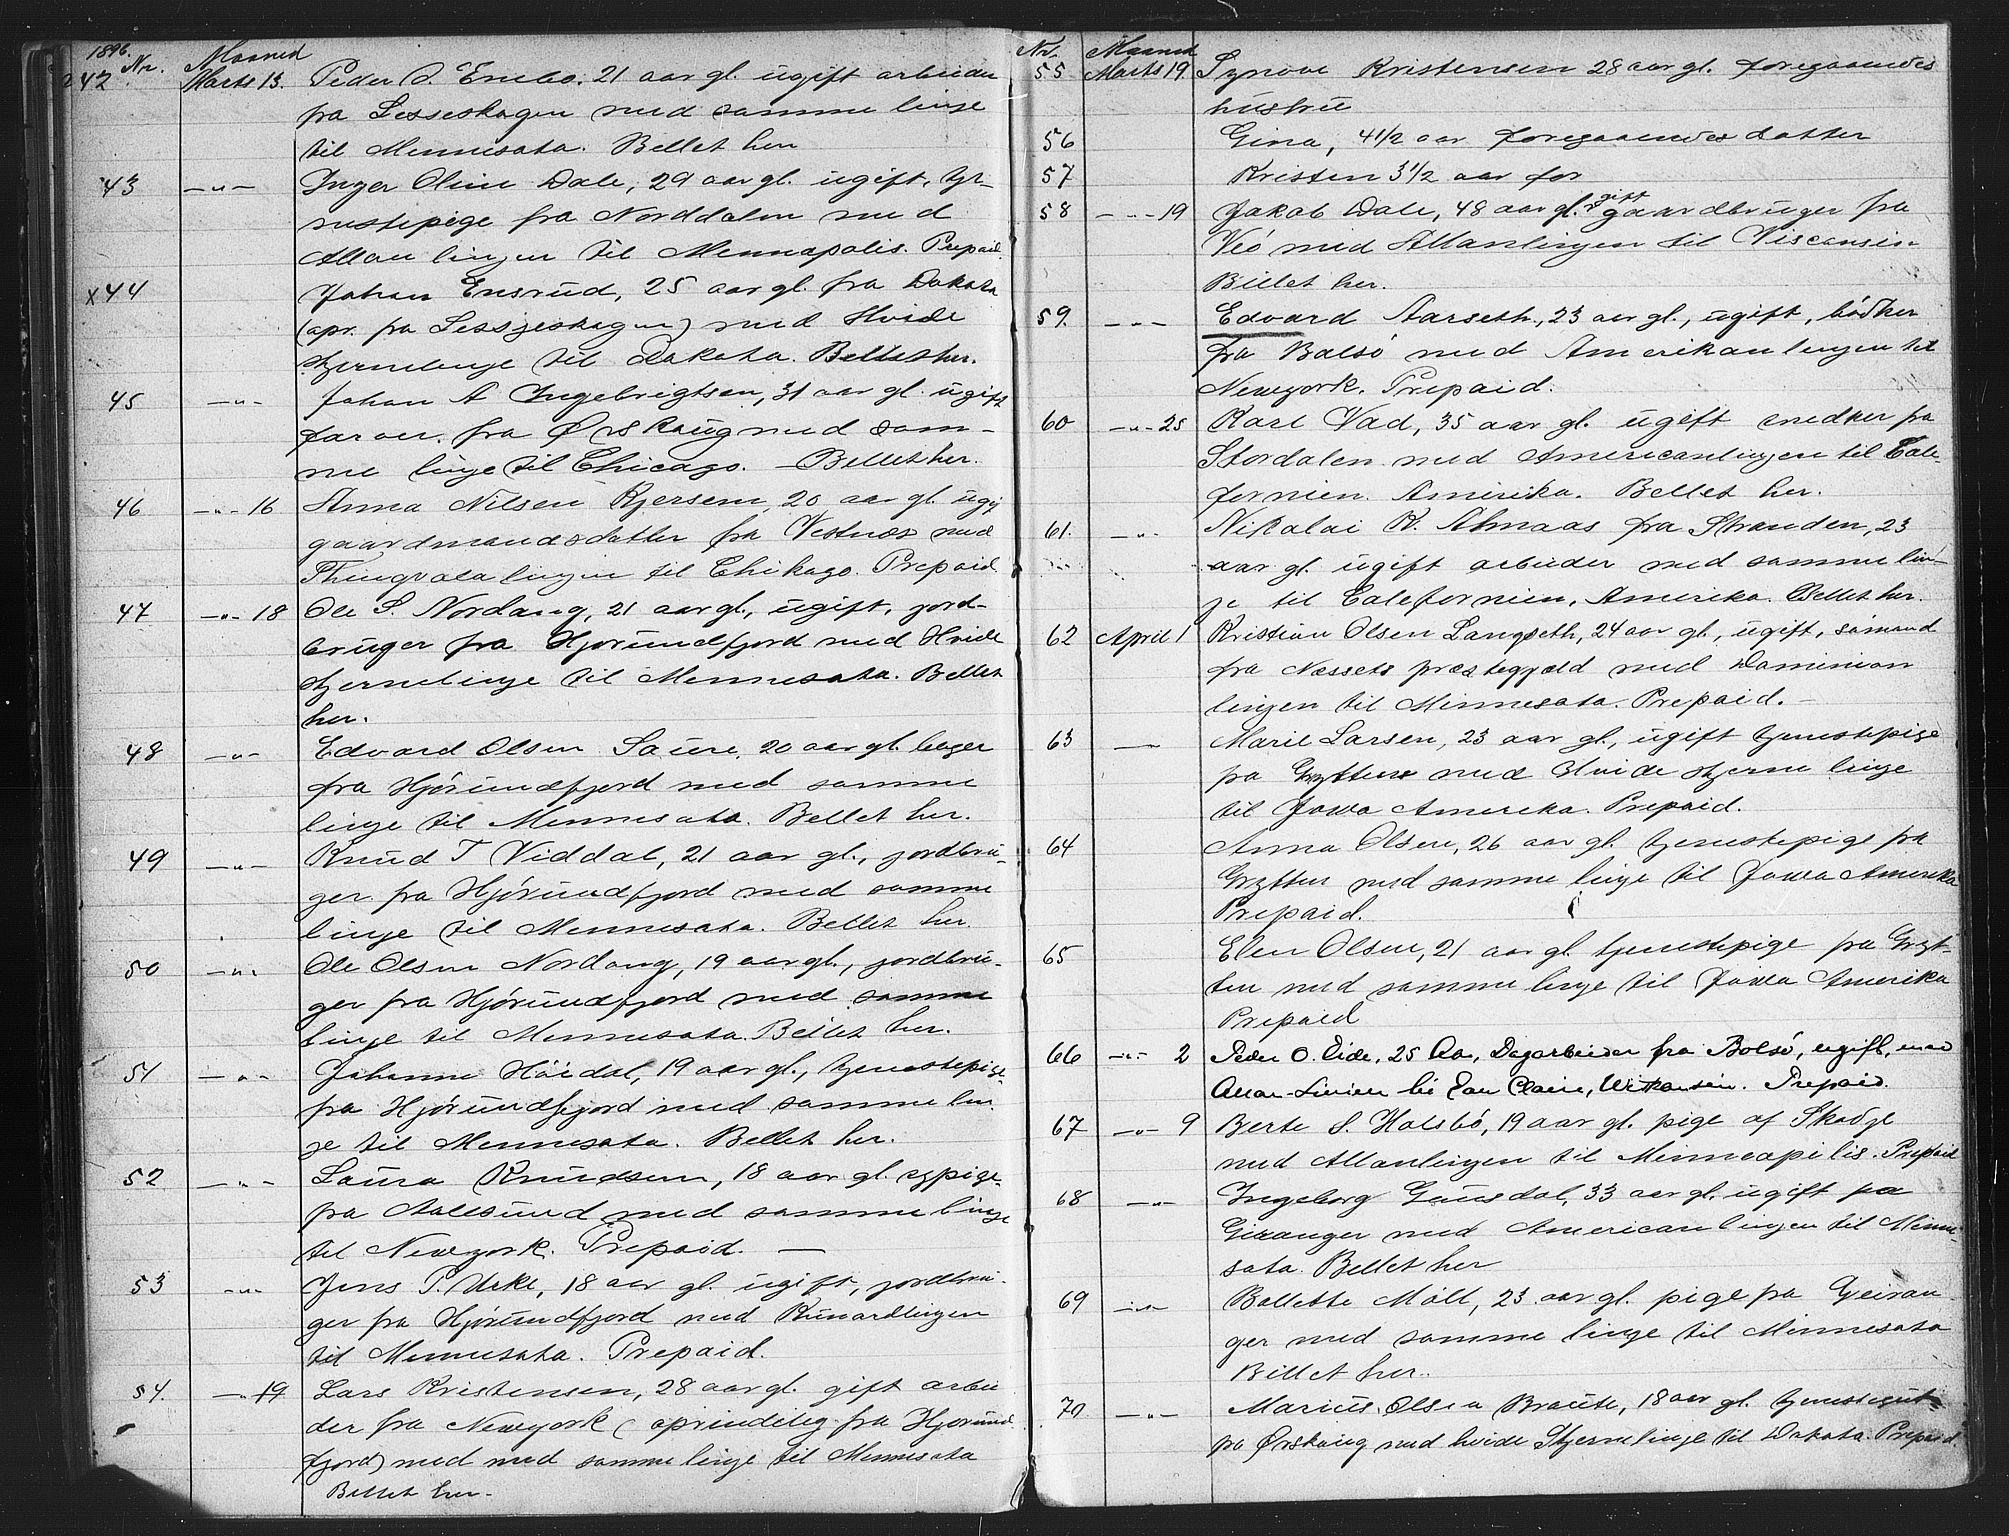 1896.
Nr. Maaned
42 Marts 13. Peder O. Enebo, 21 aar gl. ugift arbeider
fra Lesseskogen med samme linje
til Minnesota. Bellet her
43 —„— Inger Oline Dale, 29 aar gl. ugift, tje-
nestepige fra Norddalen med
Allan linjen til Mennapolis. Prepaid.
x44 Johan Ensrud, 25 aar gl. fra Dakota
(opr. fra Lessjeskogen) med Hvide
stjernelinje til Dakota. Bellet her.
45 —„— Johan A Ingebrigtsen, 31 aar gl. ugift
farver. fra Ørskaug med sam-
me linje til Chicago. — Bellet her.
46 —„— 16 Anna Nilsen Kjersem, 20 aar gl. ugif
gaardmandsdatter fra Vestnæs med
Thingvala linjen til Chikago. Prepaid.
47 —„— 18 Ole S. Nordang, 21 aar gl., ugift, jord-
bruger fra Hjørundfjord med Hvide
stjernelinje til Mennesota. Bellet
her.
48 —„— Edvard Olsen Saure, 20 aar gl.
fra Hjörundfjord med samme
linje til Mennesota. Bellet her.
49 —„— Knud T Viddal, 21 aar gl., jordbru-
ger fra Hjörundfjord med samme
linje til Mennesota. Bellet her.
50 —„— Ole Olsen Nordang, 19 aar gl., jordbru-
ger fra Hjörundfjord med samme
linje til Mennesota. Bellet her.
51 —„— Johanne Höidal, 19 aar gl., tjenestepige
fra Hjörundfjord med samme lin-
je til Mennesota. Bellet her.
52 —„— Laura Knudsen, 18 aar gl. sypige
fra Aalesund med samme linje
til Newyork. Prepaid. —
53 —„— Jens P. Urke, 18 aar gl. ugift, jordbru-
ger fra Hjörundfjord med Kunardlinjen
til Mennesota. Prepaid.
54. —„— 19 Lars Kristensen, 28 aar gl. gift arbei
der fra Newyork (oprindelig fra Hjörund
fjord) med med samme linje til Mennesota
Bellet her.
Nr. Maaned
55 Marts 19. Synove Kristensen 28 aar gl. foregaaendes
hustru
56 Gina, 4 1/2 aar foregaaendes datter
57 Kristen 3 1/2 aar for
58 —„— 19 Jakob Dale, 48 aar gl. gift gaardbruger fra
Veö med Allanlinjen til Viscansin
Billet her.
59. —„— Edvard Aarseth, 23 aar gl., ugift, bödker
fra Bolsö med Amerikanlinjen til
Newyork. Prepaid.
60 —„— 25 Karl Vad, 35 aar gl. ugift snedker fra
Stordalen med Americanlinjen til Cale-
fornien. Amirika. Bellet her.
61. —„— Nikolai K. Almaas fra Stranden, 23
aar gl. ugift arbeider med samme lin-
je til Calefornien, Amerika. Bellet her.
62 April 1 Kristian Olsen Langseth, 24 aar gl., ugift, sömand
fra Nessets præstegjæld med Dominion
linjen til Minnesota. Prepaid. —
63 —„— Marie Larsen, 23 aar gl., ugift tjenestepige
fra Grytten med Hvide stjerne linje
til Jowa Amerika. Prepaid.
64 Anna Olsen, 26 aar gl. tjenestepige fra
Grytten med samme linje til Jowa Amerika
Prepaid.
65 Elen Olsen, 21 aar gl. tjenestepige fra Gryt-
ten med samme linje til Jowa Amerika
Prepaid
66 —„— 2 Peder O. Eide, 25 Aa, Dagarbeider fra Bolsö, ugift, med
Allan-Linien til Eau Claire, Wiskonsin. Prepaid.
67 —„— 9 Berte S. Holsbö, 19 aar gl. pige af Skodje
med Allanlinjen til Minneapilis. Prepaid
68 —„— Ingeborg Gausdal, 33 aar gl. ugift fra
Giranger med American linjen til Minne-
sota. Bellet her
69 —„— Bollette Möll, 23 aar gl. pige fra Geiran
ger med samme linje til Minnesota
Billet her.
70 —„— Marius Olsen Braute, 18 aar gl. tjenestegut
fra Ørskaug med hvide Stjernelinje til Dakota. Prepaid.